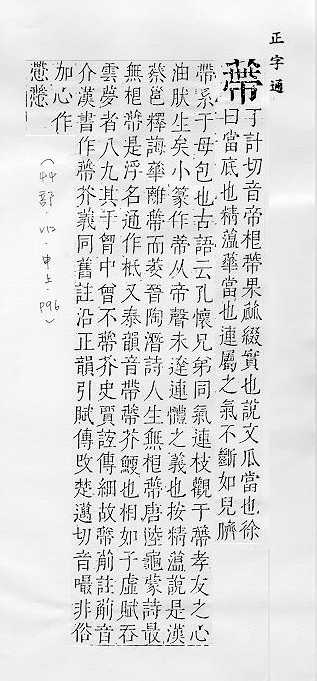 正字通
蔕
丁計切音帝根蔕果蓏綴實也說文瓜當也徐
曰當底也精蘊華當也連屬之氣不斷如兒臍
帶系于母包也古語云孔懷兄弟同氣連枝觀于蔕孝友之心
油肰生矣小篆作蒂从帝聲未逹連體之義也按精蘊說是漢
蔡邕釋誨華離蔕而萎晉陶潛詩人生無根蔕唐陸龜蒙詩最
無根蔕是浮名通作柢又泰韻音帶蔕芥鯁也相如子虛賦吞
雲夢者八九其于胷中曾不蔕芥史賈誼傳細故蔕葪註葪音
介漢書作蔕芥義同舊註沿正韻引賦傳攺楚邁切音嘬非俗
加心作
(44部.VIZ.申上.P96)